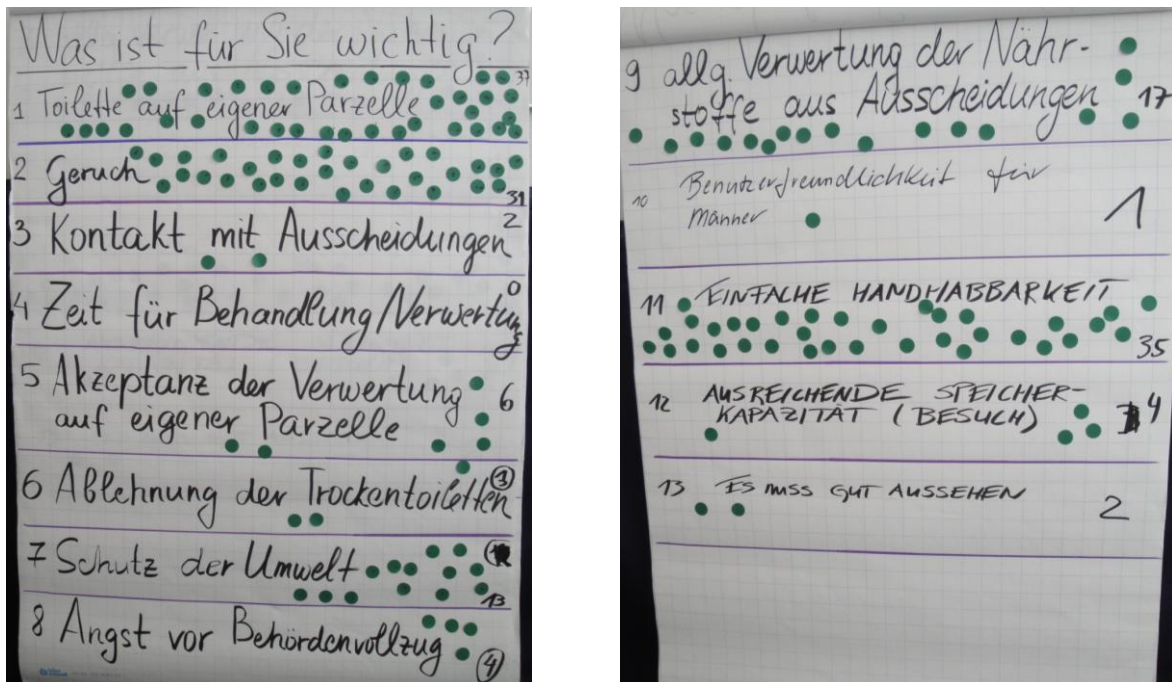 Was ist für Sie wichtig?
1 Toilette auf eigener Parzelle 37
2 Geruch 31
3 Kontakt mit Ausscheidungen 2
4 Zeit für Behandlung/Verwertung 0
5 Akzeptanz der Verwertung 6
auf eigener Parzelle
6 Ablehnung der Trockentoiletten 3
7 Schutz der Umwelt
13
8 Angst vor Behördenvollzug 4
9 allg. Verwertung der Nähr-
stoffe aus Ausscheidungen 17
10 Benutzerfreundlichkeit für
Männer 1
11 EINFACHE HANDHABBARKEIT
35
12 AUSREICHENDE SPEICHER-
KAPAZITÄT (BESUCH) 4
13 ES MUSS GUT AUSSEHEN 2